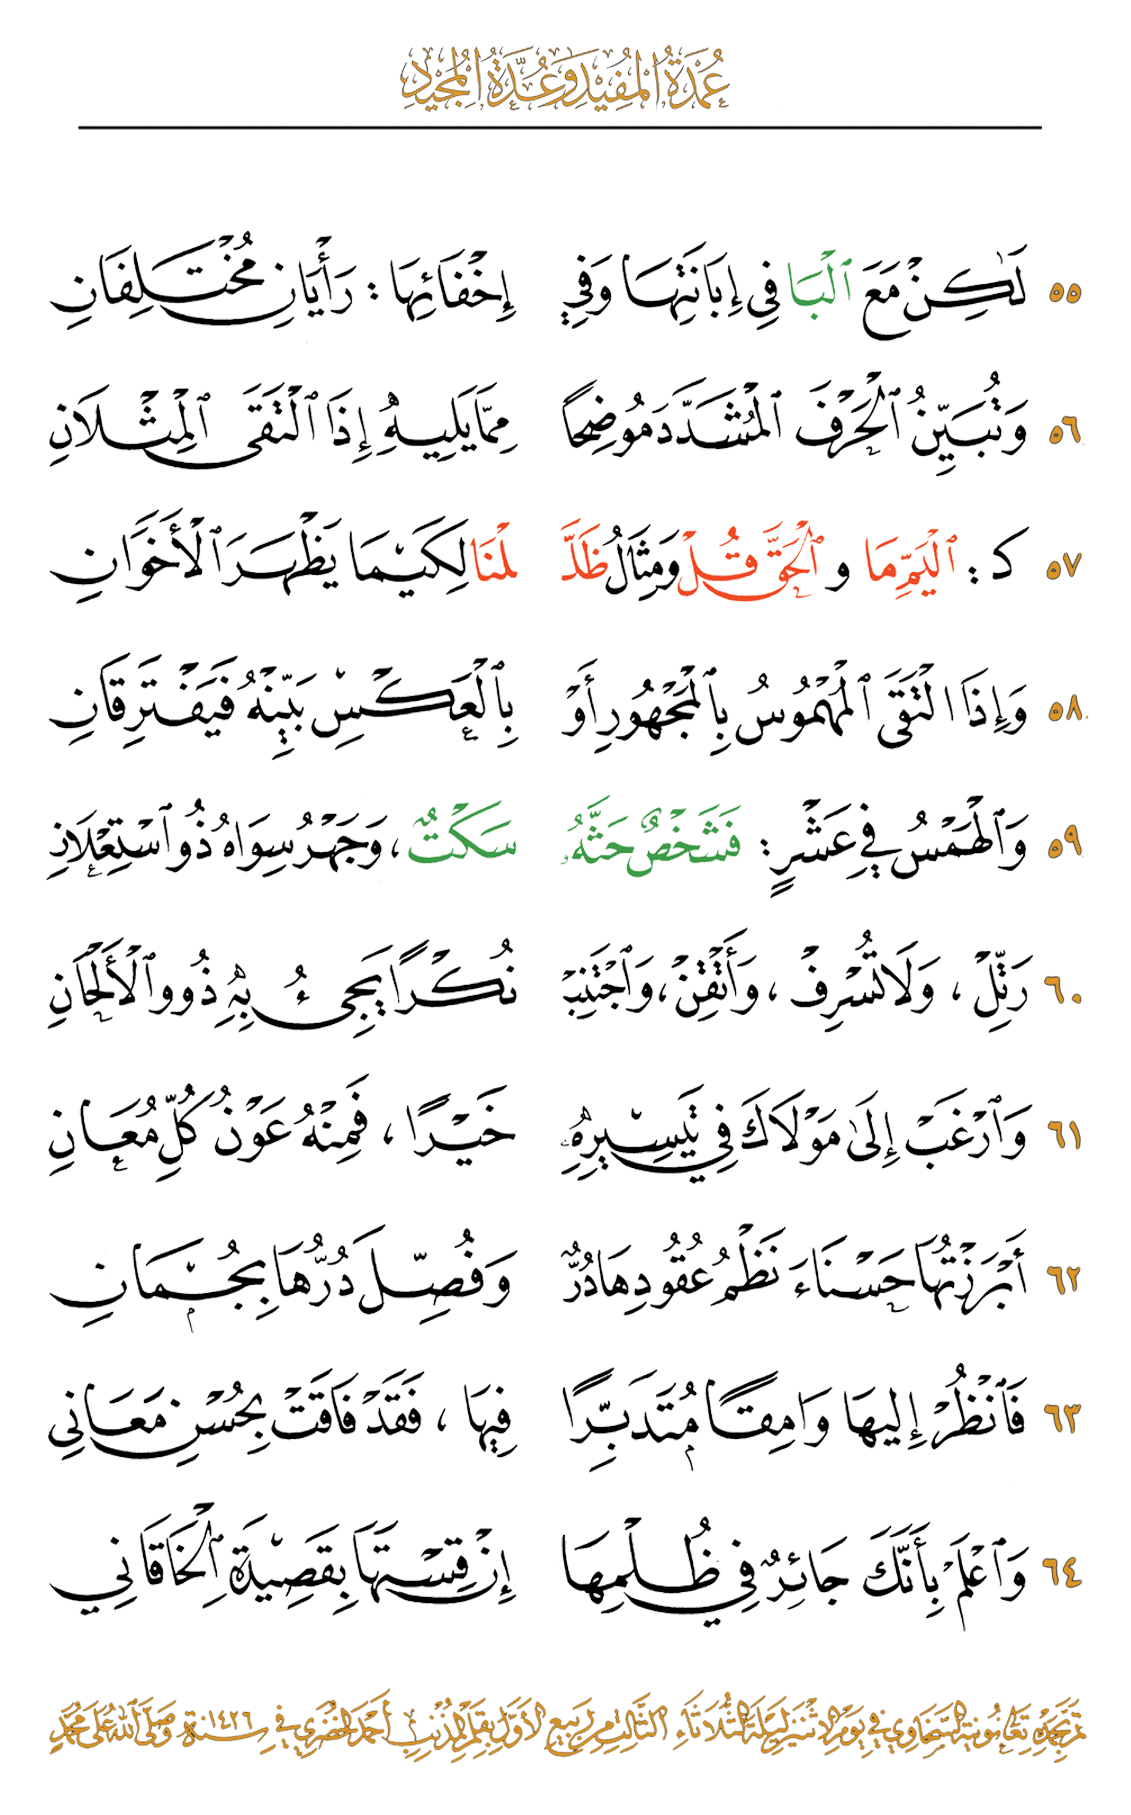 عُمْدَةُ المُفِيْدِ وَعُدَّةُ المُجِيْدِ
٥٥ لَٰكِنْ مَعَ ٱلْبَا فِي إِبَانَتِهَا وَفِي إِخْفَائِهَا : رَأْيَانِ مُخْتَلِفَانِ
٥٦ وَتُبَيِّنُ ٱلْحَرْفَ ٱلْمُشَدَّدَ مُوضِحًا مِمَّا يَلِيهِ إِذَا ٱلْتَقَى ٱلْمِثْلَانِ
٥٧ كـ : ٱلْيَمِّ مَا و ٱلْحَقَّ قُلْ وَمِثَالُ ظَلَّـ ـلْنَا لِكَيْمَا يَظْهَرَ ٱلْأَخَوَانِ
٥٨ وَإِذَا الْتَقَى ٱلْمَهْمُوسُ بِٱلْمَجْهُورِ أَوْ بِٱلْعَكْسِ بَيِّنْهُ فَيَفْتَرِقَانِ
٥٩ وَٱلْهَمْسُ فِي عَشْرٍ : فَشَخْصٌ حَثَّهُ سَكْتٌ ، وَجَهْرُ سِوَاهُ ذُو ٱسْتِعْلَانِ
٦٠ رَتِّلْ ، وَلَا تُسْرِفْ ، وَأَتْقِنْ ، وَٱجْتَنِبْ نُكْرًا يَجِيءُ بِهِ ذُوو ٱلْأَلْحَانِ
٦١ وَٱرْغَبْ إِلَىٰ مَوْلَاكَ فِي تَيْسِيرِهِ خَيْرًا ، فَمِنْهُ عَوْنُ كُلِّ مُعَانِ
٦٢ أَبْرَزْتُهَا حَسْنَاءَ نَظْمُ عُقُودِهَا دُرٌّ وَفُصِّلَ دُرُّهَا بِجُمَانِ
٦٣ فَٱنْظُرْ إِليهَا وَامِقًا مُتَدَبِّرًا فِيهَا ، فَقَدْ فَاقَتْ بِحُسْنِ مَعَانِي
٦٤ وَٱعْلَمْ بِأَنَّكَ جَائِرٌ فِي ظُلْمِهَا إِنْ قِسْتَهَا بِقَصِيْدَةِ ٱلْخَاقَانِي
نُونِيةُ السَّخَاوِي فِي يَوْمِ الاثْنَيْنِ لَيْلَةَ الثُّلَاثَاءِ الثَّالِثِ مِنْ رَبِيعٍ الأَوَّلِ بِقَلَمِ المُذْنِبِ أَحْمَدَ الخُضَرِي فِي سنة ١٤٢٦ وَصَلَّى اللهُ عَلَى مُحَمَّدٍ